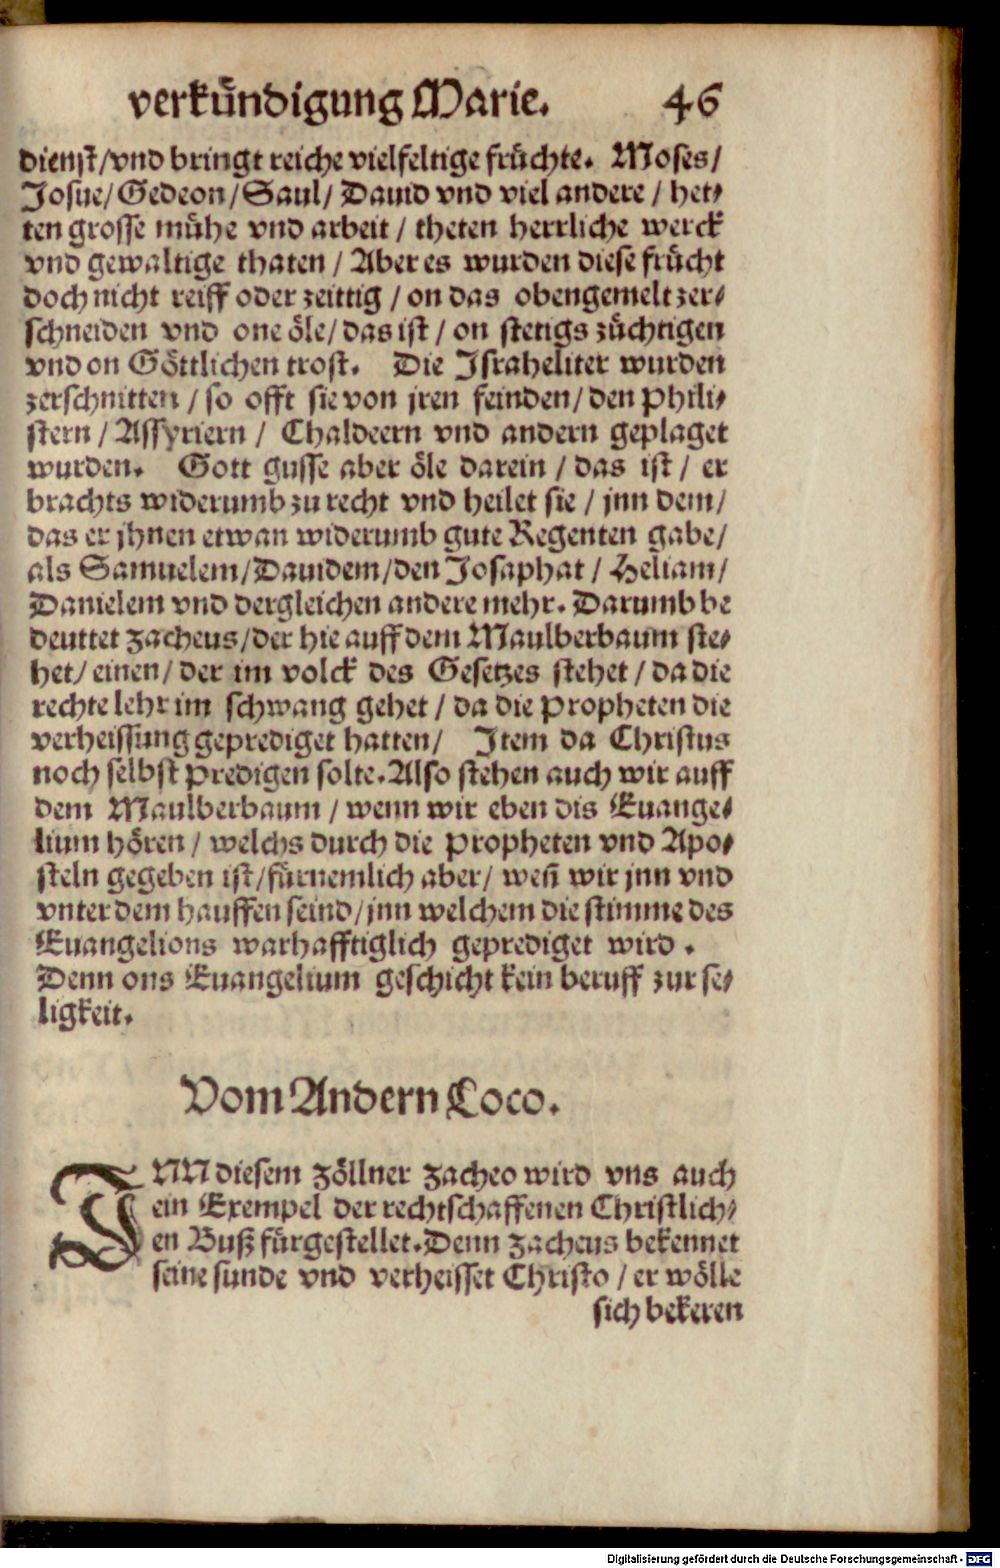 verkündigung Marie. 46
dienst/vnd bringt reiche vielfeltige früchte. Moses/
Josue/Gedeon/Saul/Dauid vnd viel andere/het⸗
ten grosse mühe vnd arbeit/theten herrliche werck
vnd gewaltige thaten/Aber es wurden diese frücht
doch nicht reiff oder zeittig/on das obengemelt zer⸗
schneiden vnd one öle/das ist/on stetigs züchtigen
vnd on Göttlichen trost. Die Israheliter wurden
zerschnitten/so offt sie von jren feinden/den Phili⸗
stern/Assyriern/Chaldeern vnd andern geplaget
wurden. Gott gusse aber öle darein/das ist/er
brachts widerumb zu recht vnd heilet sie/jnn dem/
das er jhnen etwan widerumb gute Regenten gabe/
als Samuelem/Dauidem/den Josaphat/Heliam/
Danielem vnd dergleichen andere mehr. Darumb be
deuttet Zacheus/der hie auff dem Maulberbaum ste⸗
het/einen/der im volck des Gesetzes stehet/da die
rechte lehr im schwang gehet/da die Propheten die
verheissung geprediget hatten/ Item da Christus
noch selbst Predigen solte. Also stehen auch wir auff
dem Maulberbaum/wenn wir eben dis Euange⸗
lium hören/welchs durch die Propheten vnd Apo⸗
steln gegeben ist/fürnemlich aber/weñ wir jnn vnd
vnter dem hauffen seind/jnn welchem die stimme des
Euangelions warhafftiglich geprediget wird.
Denn ons Euangelium geschicht kein beruff zur se⸗
ligkeit.
Vom Andern Loco.
INN diesem Zöllner Zacheo wird vns auch
ein Exempel der rechtschaffenen Christlich⸗
en Buß fürgestellet. Denn Zacheus bekennet
seine sunde vnd verheisset Christo/er wölle
sich bekeren
Digitalisierung gefördert durch die Deutsche Forschungsgemeinschaft - DFG